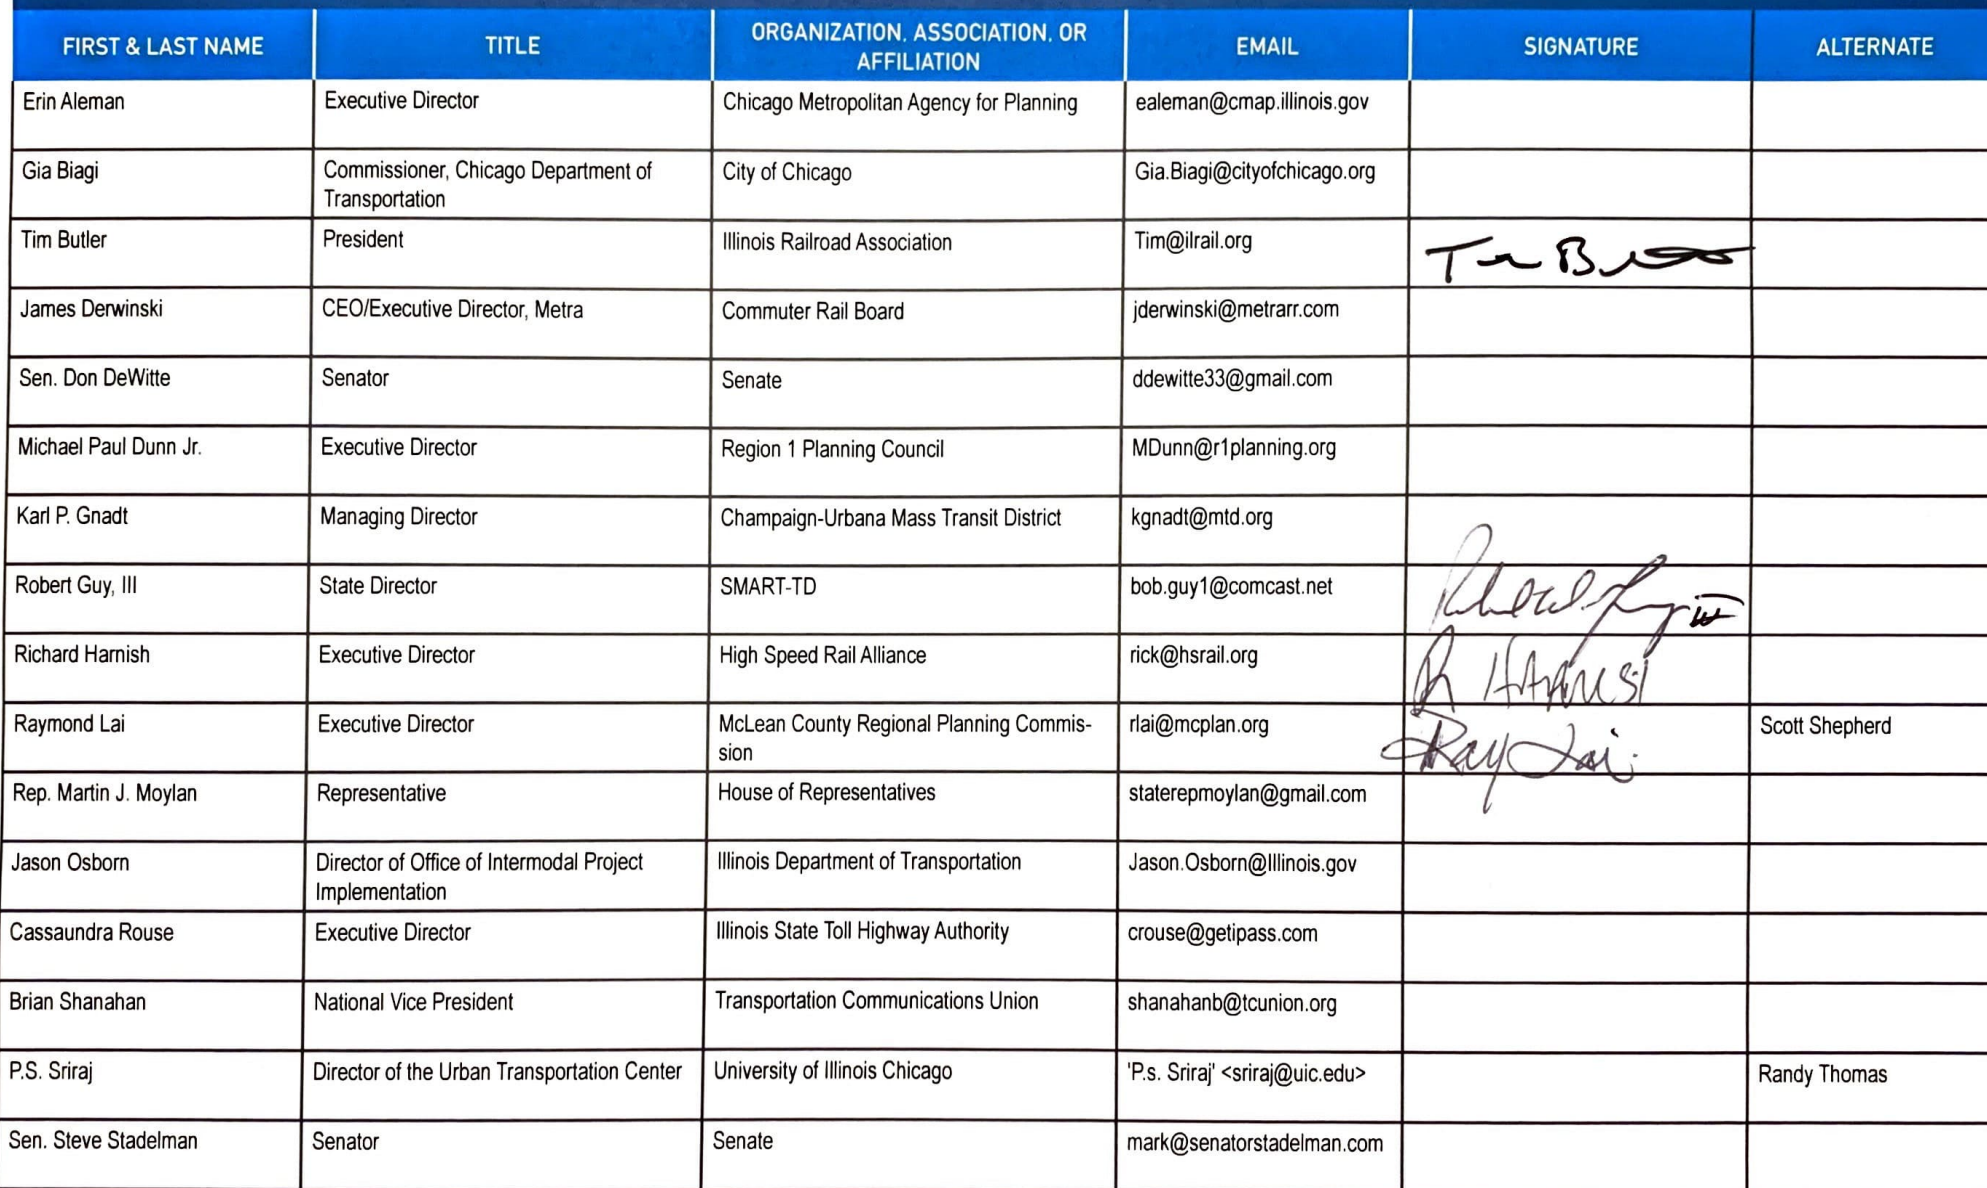 FIRST & LAST NAME TITLE ORGANIZATION, ASSOCIATION, OR AFFILIATION EMAIL SIGNATURE ALTERNATE
Erin Aleman Executive Director Chicago Metropolitan Agency for Planning ealeman@cmap.illinois.gov
Gia Biagi Commissioner, Chicago Department of City of Chicago Gia.Biagi@cityofchicago.org
Transportation
Tim Butler President Illinois Railroad Association Tim@ilrail.org
James Derwinski CEO/Executive Director, Metra Commuter Rail Board jderwinski@metrarr.com
Sen. Don DeWitte Senator Senate ddewitte33@gmail.com
Michael Paul Dunn Jr. Executive Director Region 1 Planning Council MDunn@r1planning.org
Karl P. Gnadt Managing Director Champaign-Urbana Mass Transit District kgnadt@mtd.org
Robert Guy, III State Director SMART-TD bob.guy1@comcast.net III
Richard Harnish Executive Director High Speed Rail Alliance rick@hsrail.org
Raymond Lai Executive Director McLean County Regional Planning Commis- rlai@mcplan.org Ray Lai Scott Shepherd
sion
Rep. Martin J. Moylan Representative House of Representatives staterepmoylan@gmail.com
Jason Osborn Director of Office of Intermodal Project Illinois Department of Transportation Jason.Osborn@Illinois.gov
Implementation
Cassaundra Rouse Executive Director Illinois State Toll Highway Authority crouse@getipass.com
Brian Shanahan National Vice President Transportation Communications Union shanahanb@tcunion.org
P.S. Sriraj Director of the Urban Transportation Center University of Illinois Chicago 'P.s. Sriraj' <sriraj@uic.edu> Randy Thomas
Sen. Steve Stadelman Senator Senate mark@senatorstadelman.com